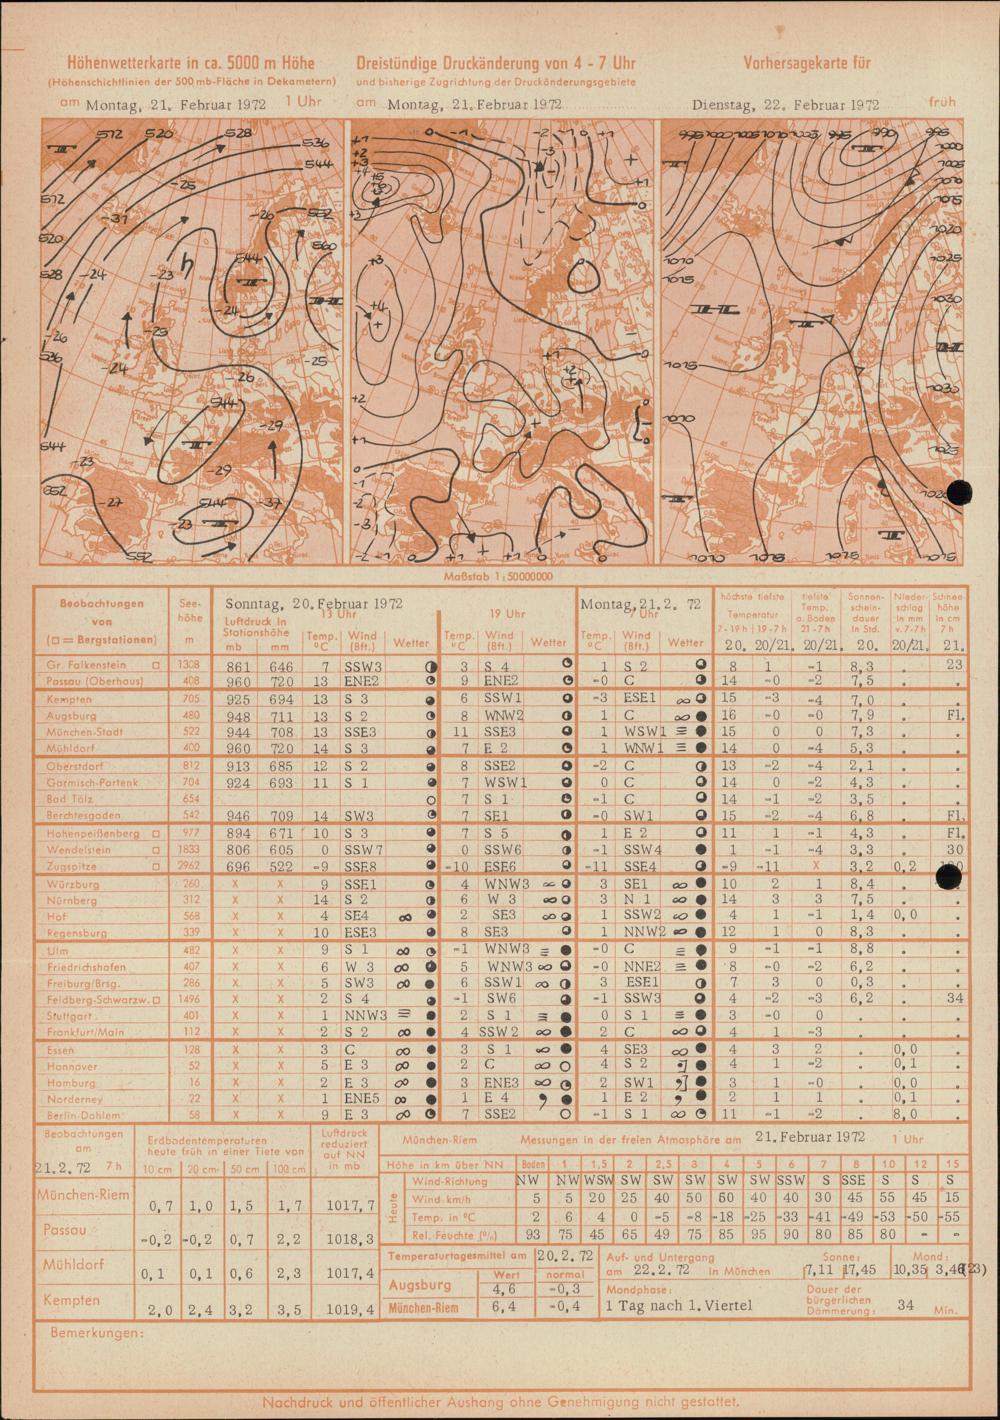 Höhenwetterkarte in ca. 5000 m Höhe
(Höhenschichtlinien der 500 mb-Fläche in Dekametern)
am Montag, 21. Februar 1972 1 Uhr
Dreistündige Druckänderung von 4 - 7 Uhr
und bisherige Zugrichtung der Druckänderungsgebiete
am Montag, 21. Februar 1972
Vorhersagekarte für
Dienstag, 22. Februar 1972 früh
Maßstab 1:50000000
Beobachtungen von (□ = Bergstationen)
Seehöhe m
Sonntag, 20. Februar 1972
13 Uhr
Luftdruck in Stationshöhe
mb mm
Temp. °C Wind (Bft.) Wetter
19 Uhr
Temp. °C Wind (Bft.) Wetter
Montag, 21. 2. 72
7 Uhr
Temp. °C Wind (Bft.) Wetter
höchste tiefste Temperatur 7-19h 19-7h
tiefste Temp. a. Boden 21-7h
Sonnenscheindauer in Std.
Niederschlag in mm v. 7-7h
Schneehöhe in cm 7 h
20. 20/21. 20/21. 20. 20/21. 21.
Gr. Falkenstein □ 1308 861 646 7 SSW3 3 S 4 1 S 2 8 1 -1 8,3 . 23
Passau (Oberhaus) 408 960 720 13 ENE2 9 ENE2 -0 C 14 -0 -2 7,5 . .
Kempten 705 925 694 13 S 3 6 SSW1 -3 ESE1 ∞ 15 -3 -4 7,0 . .
Augsburg 480 948 711 13 S 2 8 WNW2 1 C ∞ 16 -0 -0 7,9 . Fl.
München-Stadt 522 944 708 13 SSE3 11 SSE3 1 WSW1 ≡ 15 0 0 7,3 . .
Mühldorf 400 960 720 14 S 3 7 E 2 1 WNW1 ≡ 14 0 -4 5,3 . .
Oberstdorf 812 913 685 12 S 2 8 SSE2 -2 C 13 -2 -4 2,1 . .
Garmisch-Partenk 704 924 693 11 S 1 7 WSW1 0 C 14 0 -2 4,3 . .
Bad Tölz 654 7 S 1 -1 C 14 -1 -2 3,5 . .
Berchtesgaden 542 946 709 14 SW3 7 SE1 -0 SW1 15 -2 -4 6,8 . Fl.
Hohenpeißenberg □ 977 894 671 10 S 3 7 S 5 1 E 2 11 1 -1 4,3 . Fl.
Wendelstein □ 1833 806 605 0 SSW7 0 SSW6 -1 SSW4 1 -1 -4 3,3 . 30
Zugspitze □ 2962 696 522 -9 SSE8 -10 ESE6 -11 SSE4 -9 -11 X 3,2 0,2
Würzburg 260 X X 9 SSE1 4 WNW3 ∞ 3 SE1 ∞ 10 2 1 8,4 . .
Nürnberg 312 X X 14 S 2 6 W 3 ∞ 3 N 1 ∞ 14 3 3 7,5 . .
Hof 568 X X 4 SE4 ∞ 2 SE3 ∞ 1 SSW2 ∞ 4 1 -1 1,4 0,0 .
Regensburg 339 X X 10 ESE3 8 SE3 1 NNW2 ∞ 12 1 0 8,3 . .
Ulm 482 X X 9 S 1 ∞ -1 WNW3 ≡ -0 C ≡ 9 -1 -1 8,8 . .
Friedrichshafen 407 X X 6 W 3 ∞ 5 WNW3 ∞ -0 NNE2 ≡ 8 -0 -2 6,2 . .
Freiburg/Brsg. 286 X X 5 SW3 ∞ 6 SSW1 ∞ 3 ESE1 7 3 0 0,3 . .
Feldberg-Schwarzw. □ 1496 X X 2 S 4 -1 SW6 -1 SSW3 4 -2 -3 6,2 . 34
Stuttgart 401 X X 1 NNW3 ≡ 2 S 1 ≡ 0 S 1 ≡ 3 -0 0 . . .
Frankfurt/Main 112 X X 2 S 2 ∞ 4 SSW2 ∞ 2 C ∞ 4 1 -3 . . .
Essen 128 X X 3 C ∞ 3 S 1 ∞ 4 SE3 ∞ 4 3 2 . 0,0 .
Hannover 52 X X 5 E 3 ∞ 2 C ∞ 4 S 2 4 1 -2 . 0,1 .
Hamburg 16 X X 2 E 3 ∞ 3 ENE3 ∞ 2 SW1 3 1 -0 . 0,0 .
Norderney 22 X X 1 ENE5 ∞ 1 E 4 1 E 2 2 1 1 . 0,1 .
Berlin-Dahlem 58 X X 9 E 3 ∞ 7 SSE2 -1 S 1 ∞ 11 -1 -2 . 8,0 .
Beobachtungen am 21.2.72 7 h
Erdbodentemperaturen heute früh in einer Tiefe von
10 cm 20 cm 50 cm 100 cm
Luftdruck reduziert auf NN in mb
München-Riem 0,7 1,0 1,5 1,7 1017,7
Passau -0,2 -0,2 0,7 2,2 1018,3
Mühldorf 0,1 0,1 0,6 2,3 1017,4
Kempten 2,0 2,4 3,2 3,5 1019,4
München-Riem Messungen in der freien Atmosphäre am 21. Februar 1972 1 Uhr
Höhe in km über NN Boden 1 1,5 2 2,5 3 4 5 6 7 8 10 12 15
Heute
Wind-Richtung NW NW WSW SW SW SW SW SW SSW S SSE S S S
Wind km/h 5 5 20 25 40 50 60 40 40 30 45 55 45 15
Temp. in °C 2 6 4 0 -5 -8 -18 -25 -33 -41 -49 -53 -50 -55
Rel. Feuchte (%) 93 75 45 65 49 75 85 95 90 80 85 80 - -
Temperaturtagesmittel am 20.2.72
Wert normal
Augsburg 4,6 -0,3
München-Riem 6,4 -0,4
Auf- und Untergang am 22.2.72 in München
Sonne: 7,11 17,45
Mond: 10,35 3,46(23)
Mondphase:
1 Tag nach 1. Viertel
Dauer der bürgerlichen Dämmerung: 34 Min.
Bemerkungen:
Nachdruck und öffentlicher Aushang ohne Genehmigung nicht gestattet.